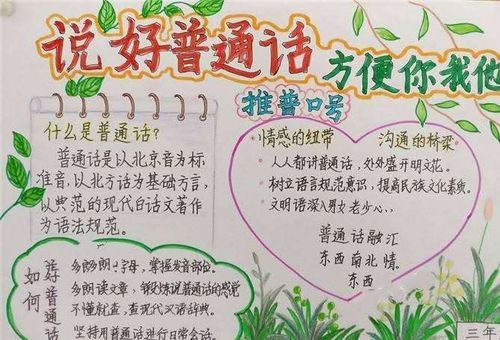 说好普通话
方便你我他
推普口号
什么是普通话?
普通话是以北京音为标
准音,以北方话为基础方言,
以典范的现代白话文著作
为语法规范。
情感的纽带 沟通的桥梁
人人都讲普通话,处处盛开明花。
树立语言规范意识,提高民族文化素质。
文明语深入男女老少心
普通话融汇
东西南北情。
东西
如何
学普通话
字母,掌握发音部位。
多朗读文章,锻炼说普通话的感觉
不懂就查,查现代汉语辞典。
坚持用普通话进行日常会话。
三年